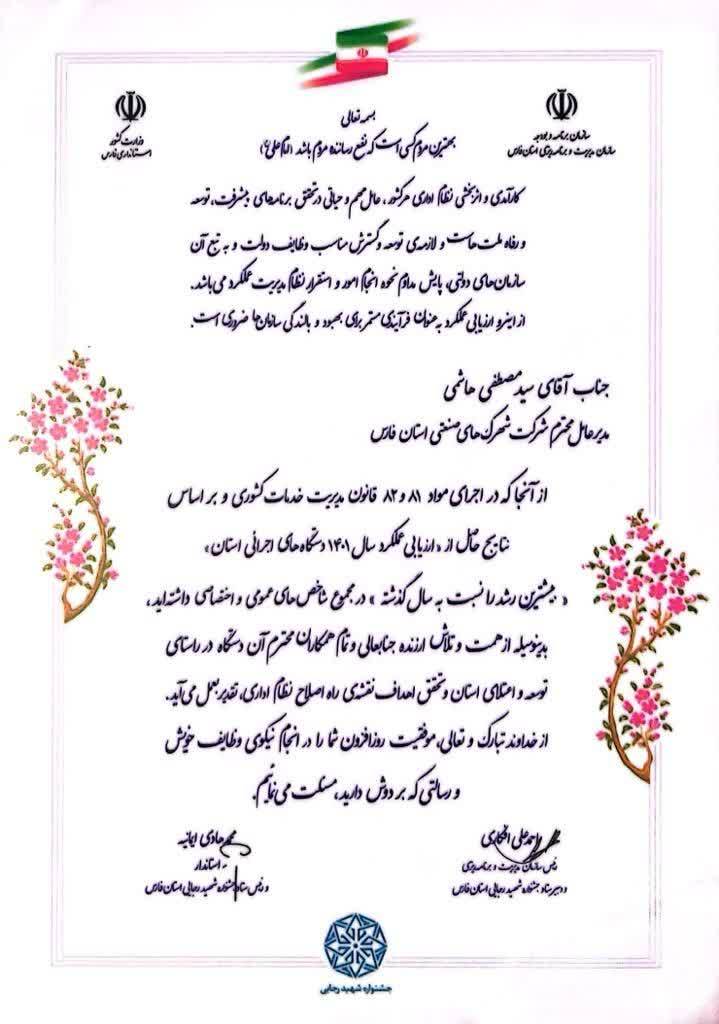 بسمه تعالی
بهترین مردم کسی است که نفع رساننده مردم باشد (امام علی ع)
سازمان برنامه و بودجه
سازمان مدیریت و برنامه ریزی استان فارس
وزارت کشور
استانداری فارس
کارآمدی و اثربخشی نظام اداری هر کشور، عامل مهم و حیاتی در تحقق برنامه‌های پیشرفت، توسعه
و رفاه ملت هاست و لازمه‌ی توسعه و گسترش مناسب وظایف دولت و به تبع آن
سازمان‌های دولتی، پایش مداوم نحوه انجام امور و استقرار نظام مدیریت عملکرد می‌باشد.
از اینرو ارزیابی عملکرد به عنوان فرآیندی مستمر برای بهبود و بالندگی سازمان‌ها ضروری است.
جناب آقای سید مصطفی هاشمی
مدیرعامل محترم شرکت شهرک‌های صنعتی استان فارس
از آنجا که در اجرای مواد ۸۱ و ۸۲ قانون مدیریت خدمات کشوری و بر اساس
نتایج حاصل از « ارزیابی عملکرد سال ۱۴۰۱ دستگاه‌های اجرائی استان »
« بیشترین رشد را نسبت به سال گذشته » در مجموع شاخص‌های عمومی و اختصاصی داشته‌اید،
بدینوسیله از همت و تلاش ارزنده جنابعالی و تمام همکاران محترم آن دستگاه در راستای
توسعه و اعتلای استان و تحقق اهداف نقشه‌ی راه اصلاح نظام اداری، تقدیر بعمل می‌آید.
از خداوند تبارک و تعالی، موفقیت روزافزون شما را در انجام نیکوی وظایف خویش
و رسالتی که بر دوش دارید، مسئلت می‌نمائیم.
احمدعلی افکاری
رئیس سازمان مدیریت و برنامه ریزی
و دبیر ستاد جشنواره شهید رجایی استان فارس
محمدهادی ایمانیه
استاندار
و رئیس ستاد جشنواره شهید رجایی استان فارس
جشنواره شهید رجایی